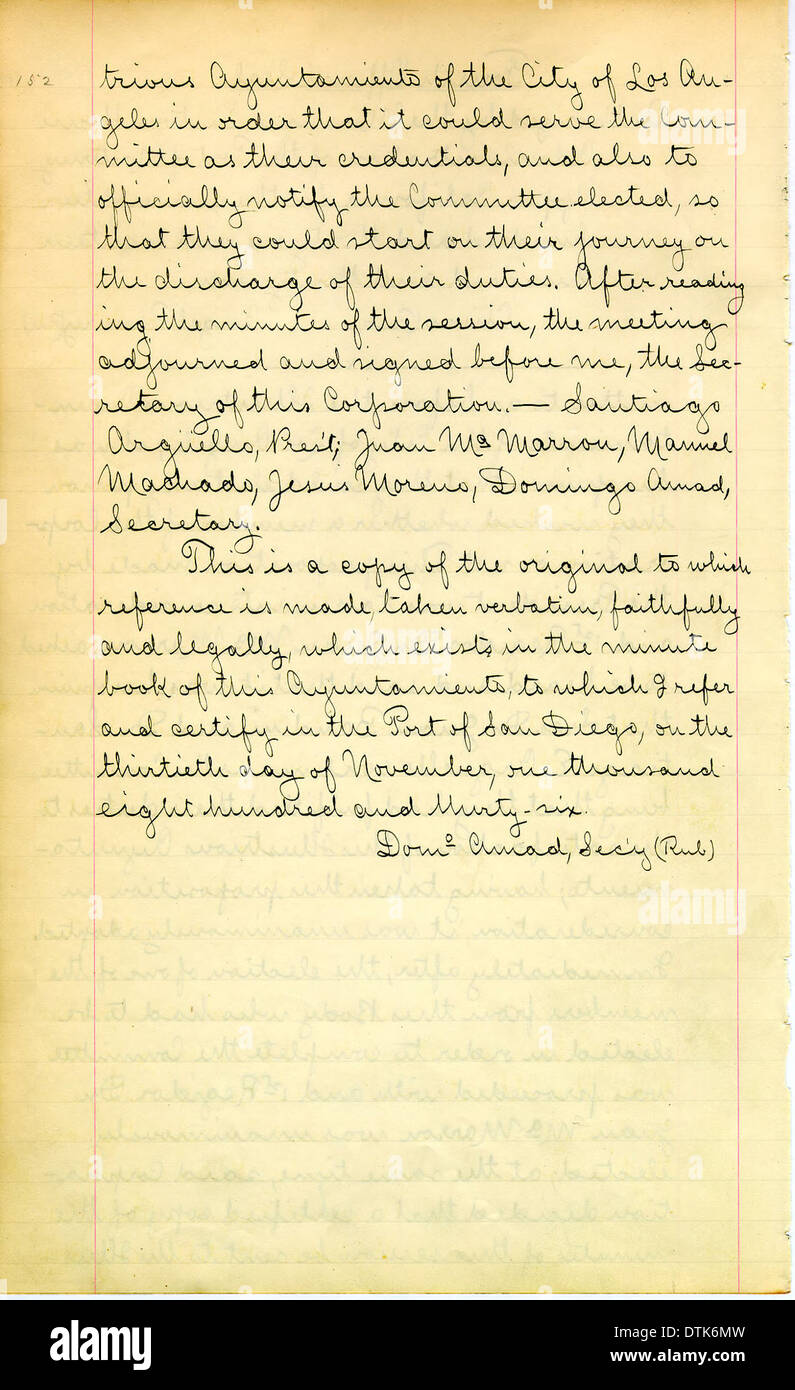 152
trious Ayuntamiento of the City of Los An-
geles in order that it could serve the Com-
mittee as their credentials, and also to
officially notify the Committee elected, so
that they could start on their journey on
the discharge of their duties. After reading
ing the minutes of the session, the meeting
adjourned and signed before me, the Sec-
retary of this Corporation. — Santiago
Argüello, Pres't; Juan Mª Marron, Manuel
Machado, Jesus Moreno, Domingo Amad,
Secretary.
This is a copy of the original to which
reference is made, taken verbatim, faithfully
and legally, which exists in the minute
book of this Ayuntamiento, to which I refer
and certify in the Port of San Diego, on the
thirtieth day of November, one thousand
eight hundred and thirty-six.
Domº Amad, Sec'y (Rub)
alamy
Image ID: DTK6MW
www.alamy.com